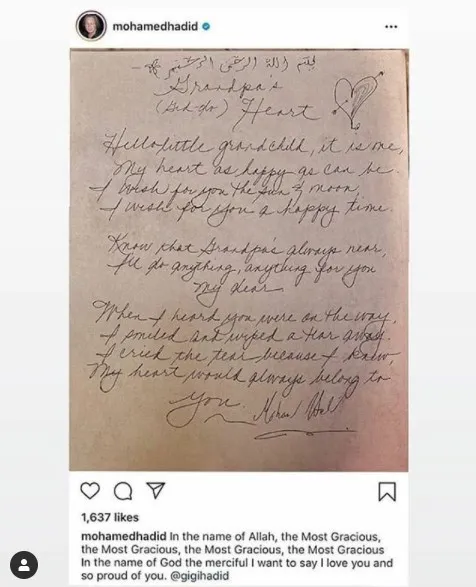 mohamedhadid
بسم الله الرحمن الرحيم
Grandpa's
(Gid-do) Heart
Hello little grandchild, it is me,
My heart as happy as can be.
I wish for you the sun & moon,
I wish for you a happy time.
Know that Grandpa's always near,
I'll do anything, anything for you
My dear
When I heard you were on the way,
I smiled and wiped a tear away.
I cried the tear because I knew,
My heart would always belong to
you.
1,637 likes
mohamedhadid In the name of Allah, the Most Gracious,
the Most Gracious, the Most Gracious, the Most Gracious
In the name of God the merciful I want to say I love you and
so proud of you. @gigihadid